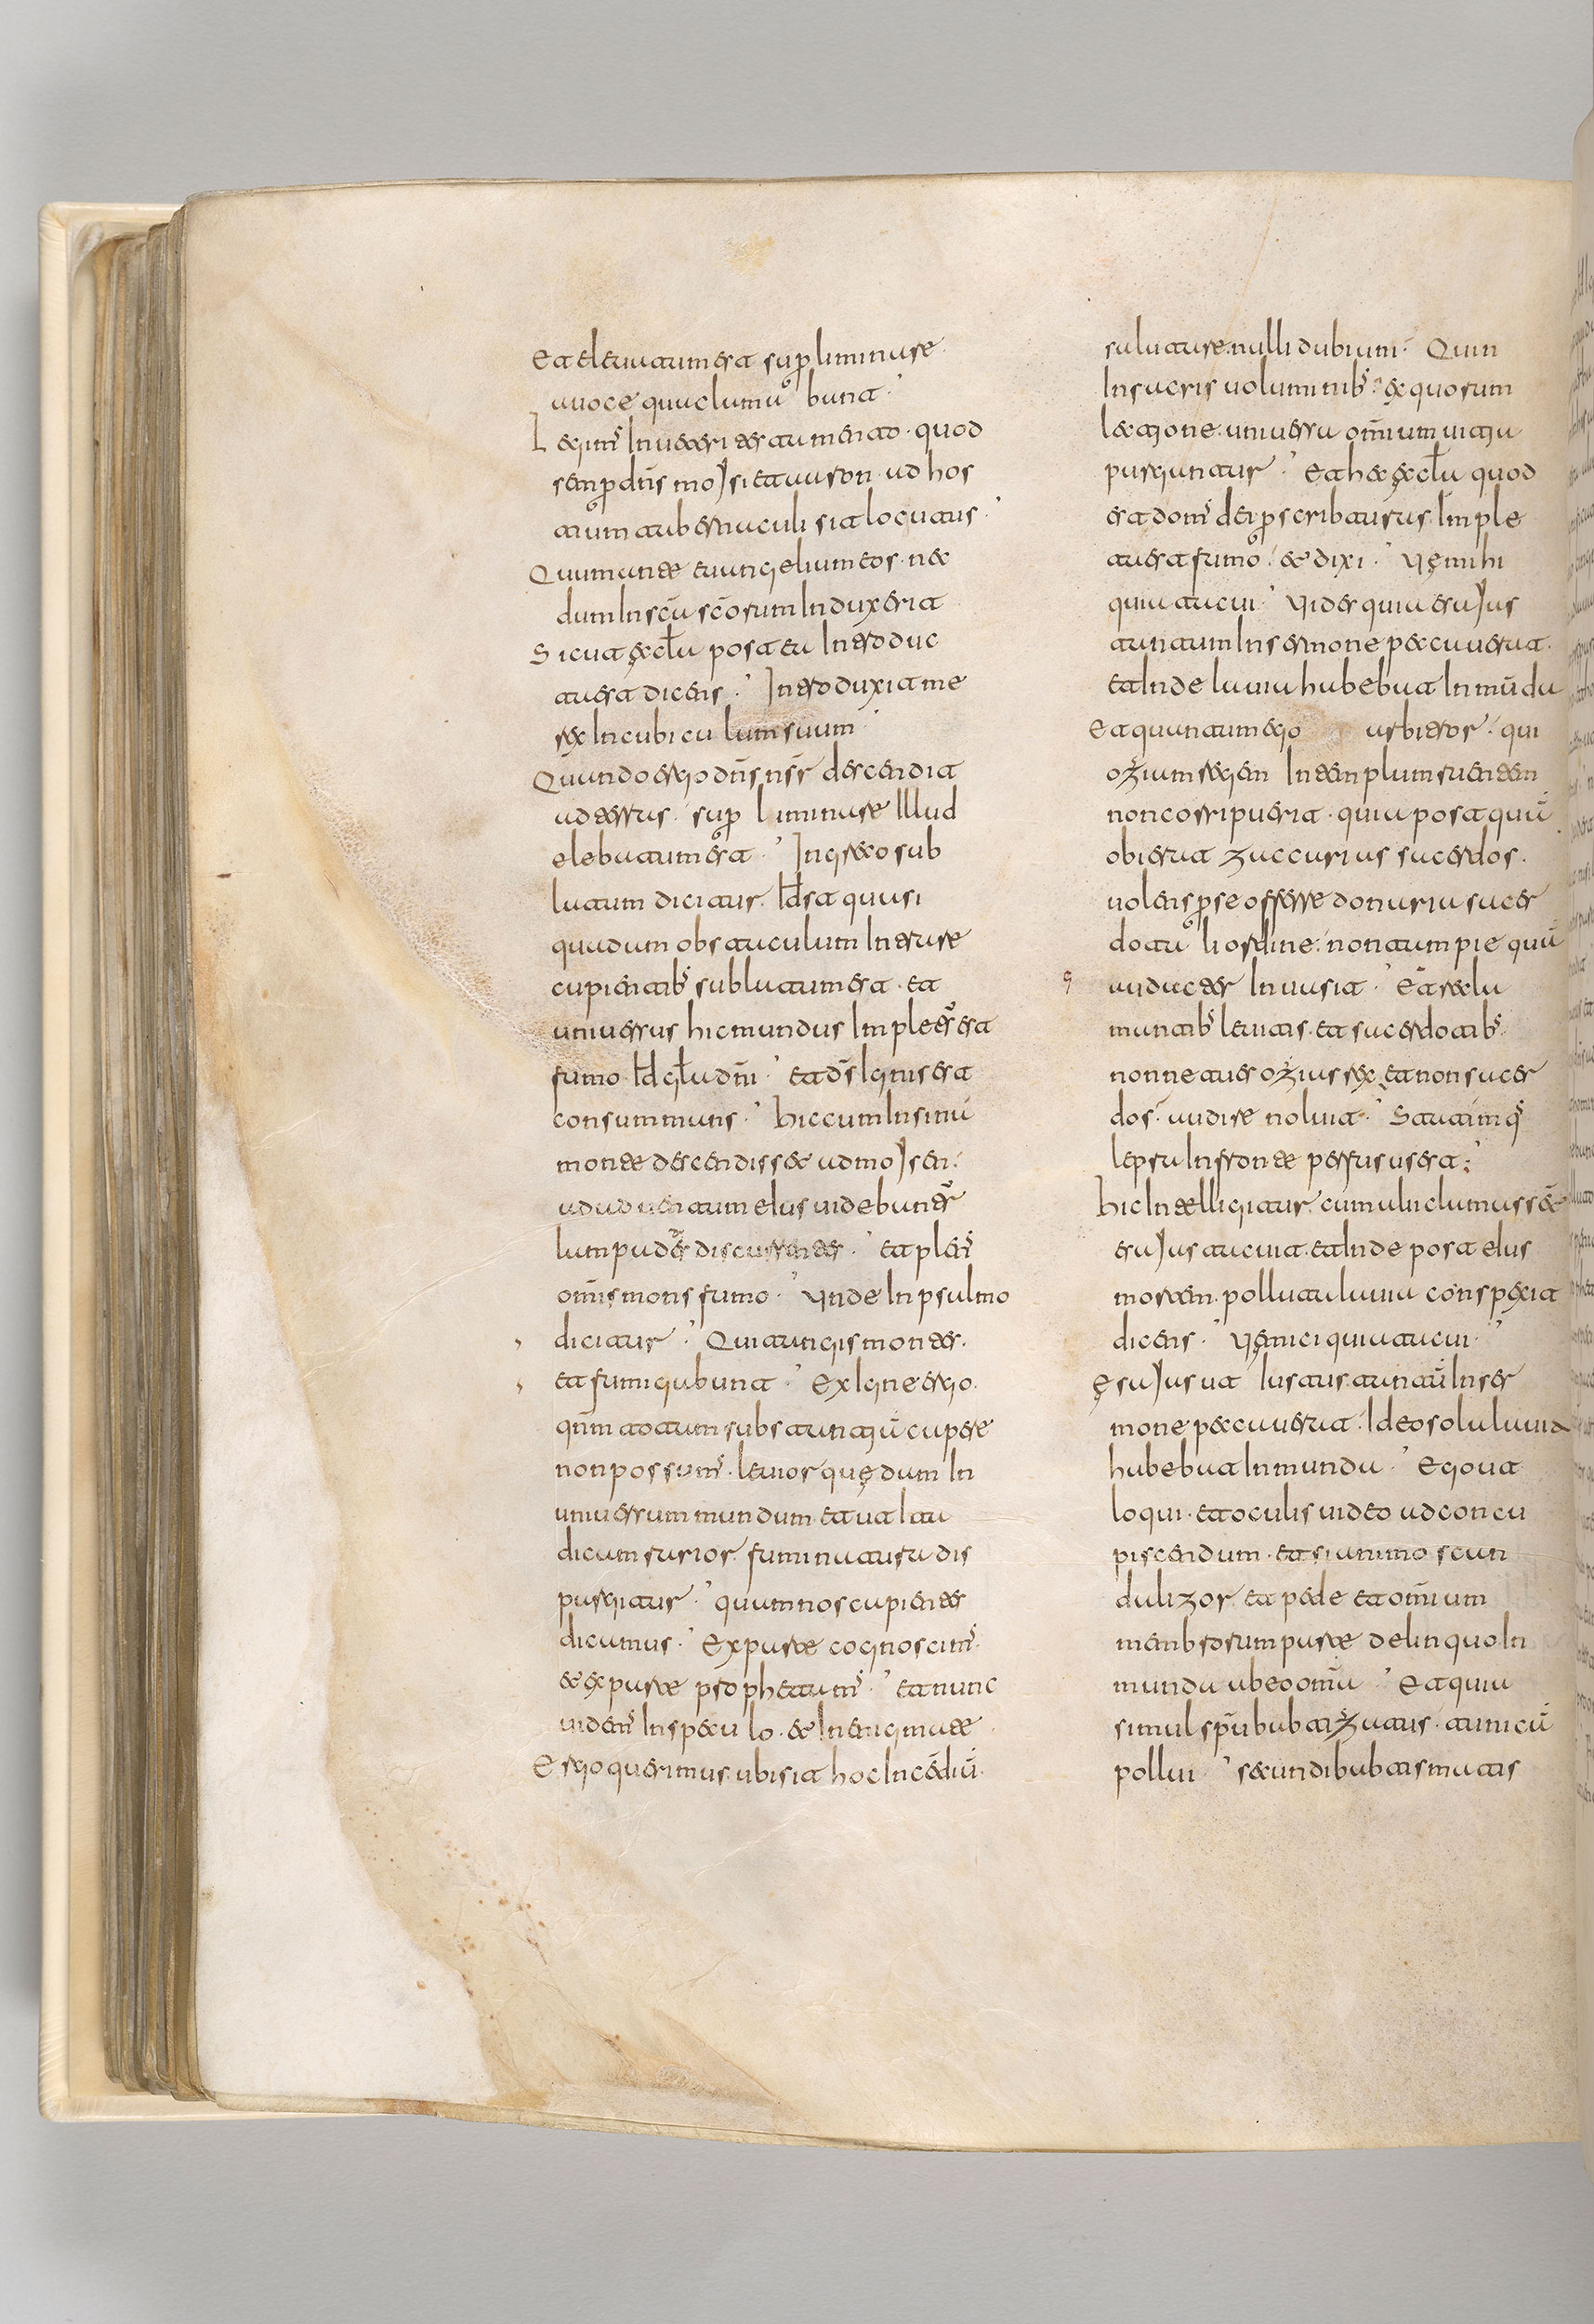 Et eleuatum est sup̄ liminare
a uoce qua clamabant.
Legim̄ In ueteri testamento. quod
semp̄ dn̄s moysi et aaron ad hos
tium tabernaculi sit locutus.
Quum ante euangelium eos nec
dum In sc̄a sc̄orum Induxerit
Sicut ęccła postea Introduc
ta est dicens. Introduxit me
ręx In cubiculum suum
Quando ergo dn̄s nsr̄ descendit
ad terras. sup̄ liminare Illud
elebatum est. In greco sub
latum dicitur. Id est quasi
quadam obstaculum Intrare
cupientib; sublatum est. et
uniuersus hic mundus Impletus est
fumo. Id gła dni. et ds̄ Ignis est
consummans. hic cum In sina
monte descendisset ad moysen.
ad aduentum eius uidebantur
lampades discurrentes. et plen̄
omīs mons fumo. Unde In psalmo
dicitur. Qui tangis montes.
et fumigabunt. Ex Igne ergo.
qnm̄ totam substantiā capere
non possum̄. leuior quędam In
uniuersum mundum. et ut Ita
dicam rarior fumi natura dis
pargitur. quam nos capientes
dicamus. Ex parte cognoscim̄.
et ęx parte prophetam̄. et nunc
uidem̄ In speculo. et In enigmate
Ergo querimus ubi sit hoc Incendiū.
saluatore. nulli dubium. Quin
In sacris uoluminib; ęx quorum
lectione. uniuersa om̄ium uitia
purgantur. Et hec ęccła quod
est dom̄ dei p̄scribaturus Imple
ta est fumo. et dixi. Uę mihi
quia tacui. Uides quia esayas
tantum In sermone peccauerat.
et Inde lauia habebat Inmūda
Et quantum ego arbitror. qui
oziam regem In templum ruentem
non corripuerit. quia postquā
obierat zaccarias sacerdos.
uolens p̄ se offerre donaria sacer
dotali ordine. non tam pie quā
auducter In uasit. Et recla
mantib; leuitis et sacerdotib;
nonne tu es ozias ręx, et non sacer
dos. audire noluit. Statimq;
lępra In fronte perfusus est;
hic Intelligitur. cum alii clamassēt
esayas tacuit. et Inde post eius
mortem. polluta lauia conspęxit
dicens. Uę mici quia tacui.
Ęsayas uat Iustus. tantū In ser
mone peccauerat. Ideo sola lauia
habebat Inmunda. Ego uat
loqui. et oculis uideo ad concu
piscendum. et si animo scan
dalizor. et pede et om̄ium
membrorum parte delinquo. In
munda abeo om̄ia. Et quia
simul spū bubtizatus. tunicā
pollui. secundi bubtismatis